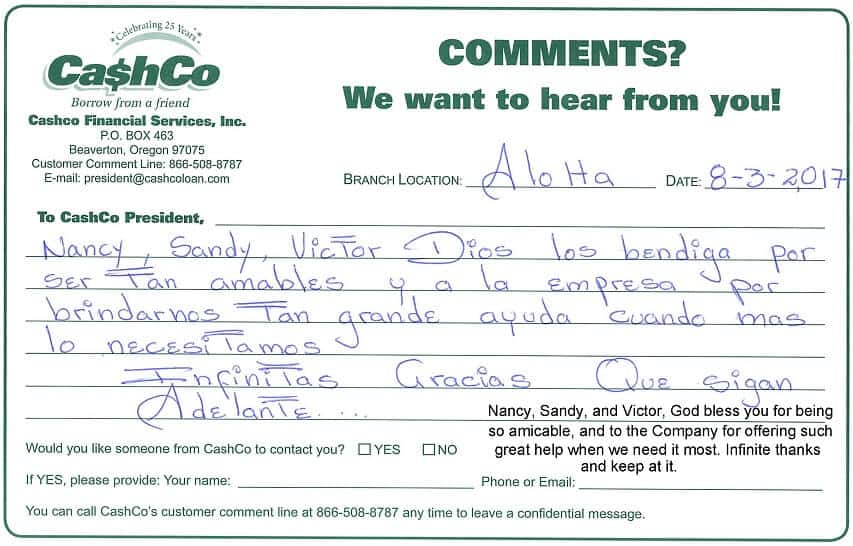 Celebrating 25 Years
Ca$hCo
Borrow from a friend
Cashco Financial Services, Inc.
P.O. BOX 463
Beaverton, Oregon 97075
Customer Comment Line: 866-508-8787
E-mail: president@cashcoloan.com
COMMENTS?
We want to hear from you!
BRANCH LOCATION: Aloha DATE: 8-3-2017
To CashCo President,
Nancy, Sandy, Victor Dios los bendiga por
ser Tan amables y a la empresa por
brindarnos Tan grande ayuda cuando mas
lo necesitamos
Infinitas Gracias Que sigan
Adelante....
Nancy, Sandy, and Victor, God bless you for being
so amicable, and to the Company for offering such
great help when we need it most. Infinite thanks
and keep at it.
Would you like someone from CashCo to contact you? ☐ YES ☐ NO
If YES, please provide: Your name: Phone or Email:
You can call CashCo's customer comment line at 866-508-8787 any time to leave a confidential message.